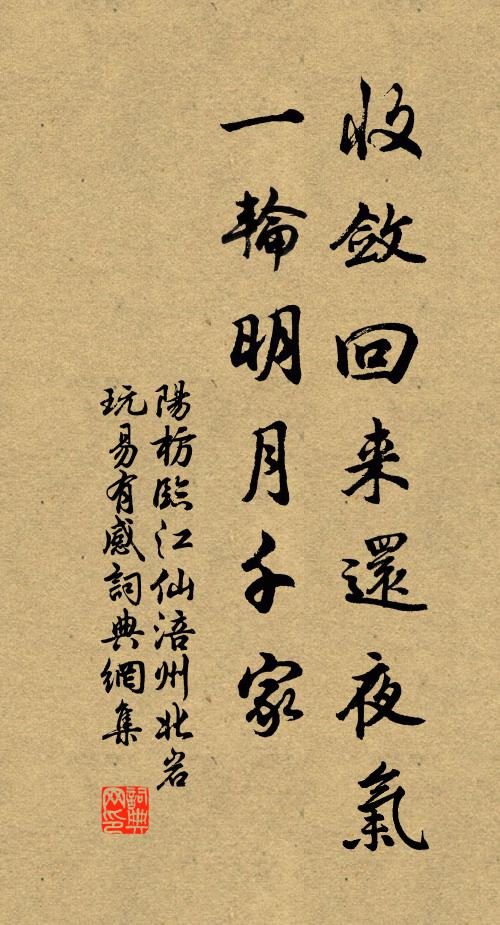 收斂回来還夜氣
一輪明月千家
陽枋臨江仙涪州北岩
玩易有感詞典網集
詞典
网印